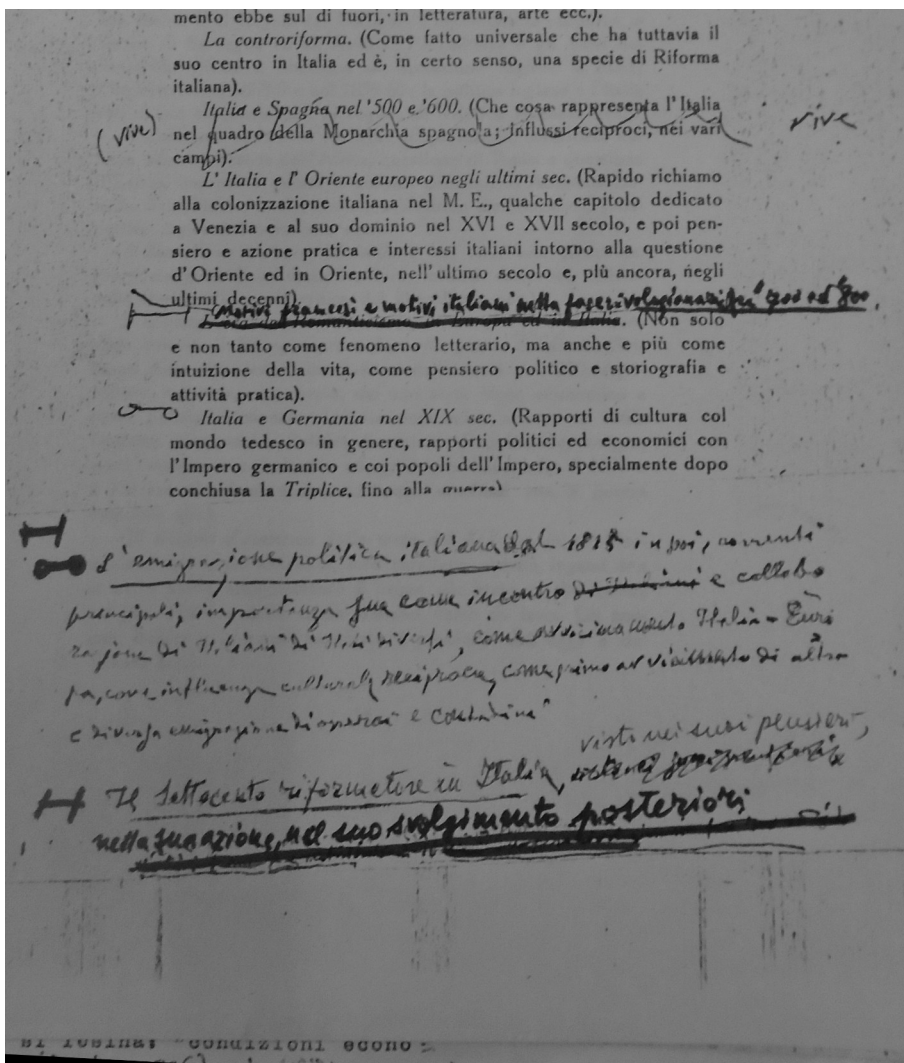 mento ebbe sul di fuori, in letteratura, arte ecc.).
La controriforma. (Come fatto universale che ha tuttavia il
suo centro in Italia ed è, in certo senso, una specie di Riforma
italiana).
Italia e Spagna nel '500 e '600. (Che cosa rappresenta l'Italia
(vive) nel quadro della Monarchia spagnola; influssi reciproci, nei vari vive
campi).
L'Italia e l'Oriente europeo negli ultimi sec. (Rapido richiamo
alla colonizzazione italiana nel M. E., qualche capitolo dedicato
a Venezia e al suo dominio nel XVI e XVII secolo, e poi pen-
siero e azione pratica e interessi italiani intorno alla questione
d'Oriente ed in Oriente, nell'ultimo secolo e, più ancora, negli
ultimi decenni).
Motivi francesi e motivi italiani nella '700 ed '800.
(Non solo
e non tanto come fenomeno letterario, ma anche e più come
intuizione della vita, come pensiero politico e storiografia e
attività pratica).
Italia e Germania nel XIX sec. (Rapporti di cultura col
mondo tedesco in genere, rapporti politici ed economici con
l'Impero germanico e coi popoli dell'Impero, specialmente dopo
conchiusa la Triplice, fino alla guerra)
L'emigrazione politica italiana dal 1815 in poi, correnti
principali, importanza sua come incontro e collabo
razione di Italiani di Stati diversi, come avvicinamento Italia-Euro
pa, come influenza culturale reciproca, come primo avviamento di altra
e diversa emigrazione di operai e contadini"
Il Settecento riformatore in Italia, visto nei suoi pensieri,
nella sua azione, nel suo svolgimento posteriori
si rosina: "condizioni econo